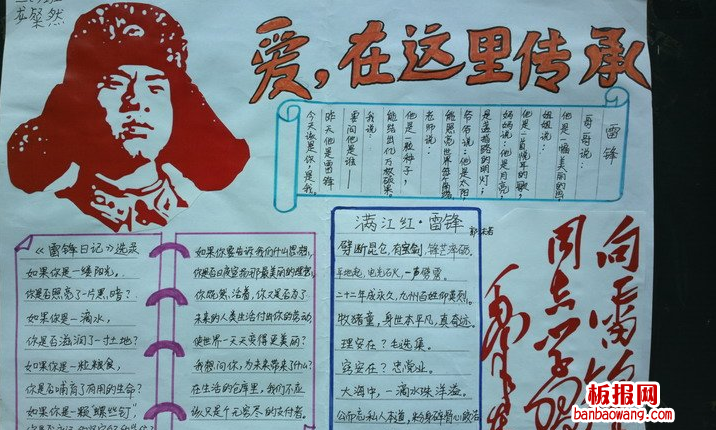 龙粲然
爱，在这里传承
雷锋
哥哥说：
他是一幅美丽的画
姐姐说：
他是一首悦耳的歌，
妈妈说：他是月亮，
是蓝蓝的明灯；
爷爷说：他是太阳，
能照亮世界每个角落
老师说：
他是一粒种子，
能结出亿万颗硕果。
我说：
要问他是谁——
昨天他是雷锋
今天该是你，是我。
《雷锋日记》选录
如果你是一缕阳光，
你是否照亮了一片黑暗？
如果你是一滴水，
你是否滋润了一寸土地？
如果你是一粒粮食，
你是否哺育了有用的生命？
如果你是一颗螺丝钉，
如果你要告诉我们什么思想，
你是否日夜宣扬那最美丽的理想？
你既然活着，你又是否为了
未来的人类生活付出你的劳动，
使世界一天天变得更美丽？
我想问你，为未来带来了什么？
在生活的仓库里，我们不应
该只是个无穷尽的支付者。
满江红·雷锋
郭沫若
劈断昆仑，有宝剑，锋芒淬砺。
平地起，电光石火，一声劈雳。
二十二年成永久，九州百姓仰英烈。
牧猪童，身世本平凡，真奇迹。
理安在？毛选集。
窍安在？忠党业。
大海中，一滴水珠洋溢。
向雷锋
同志学习
毛泽东
板报网
banbaowang.com